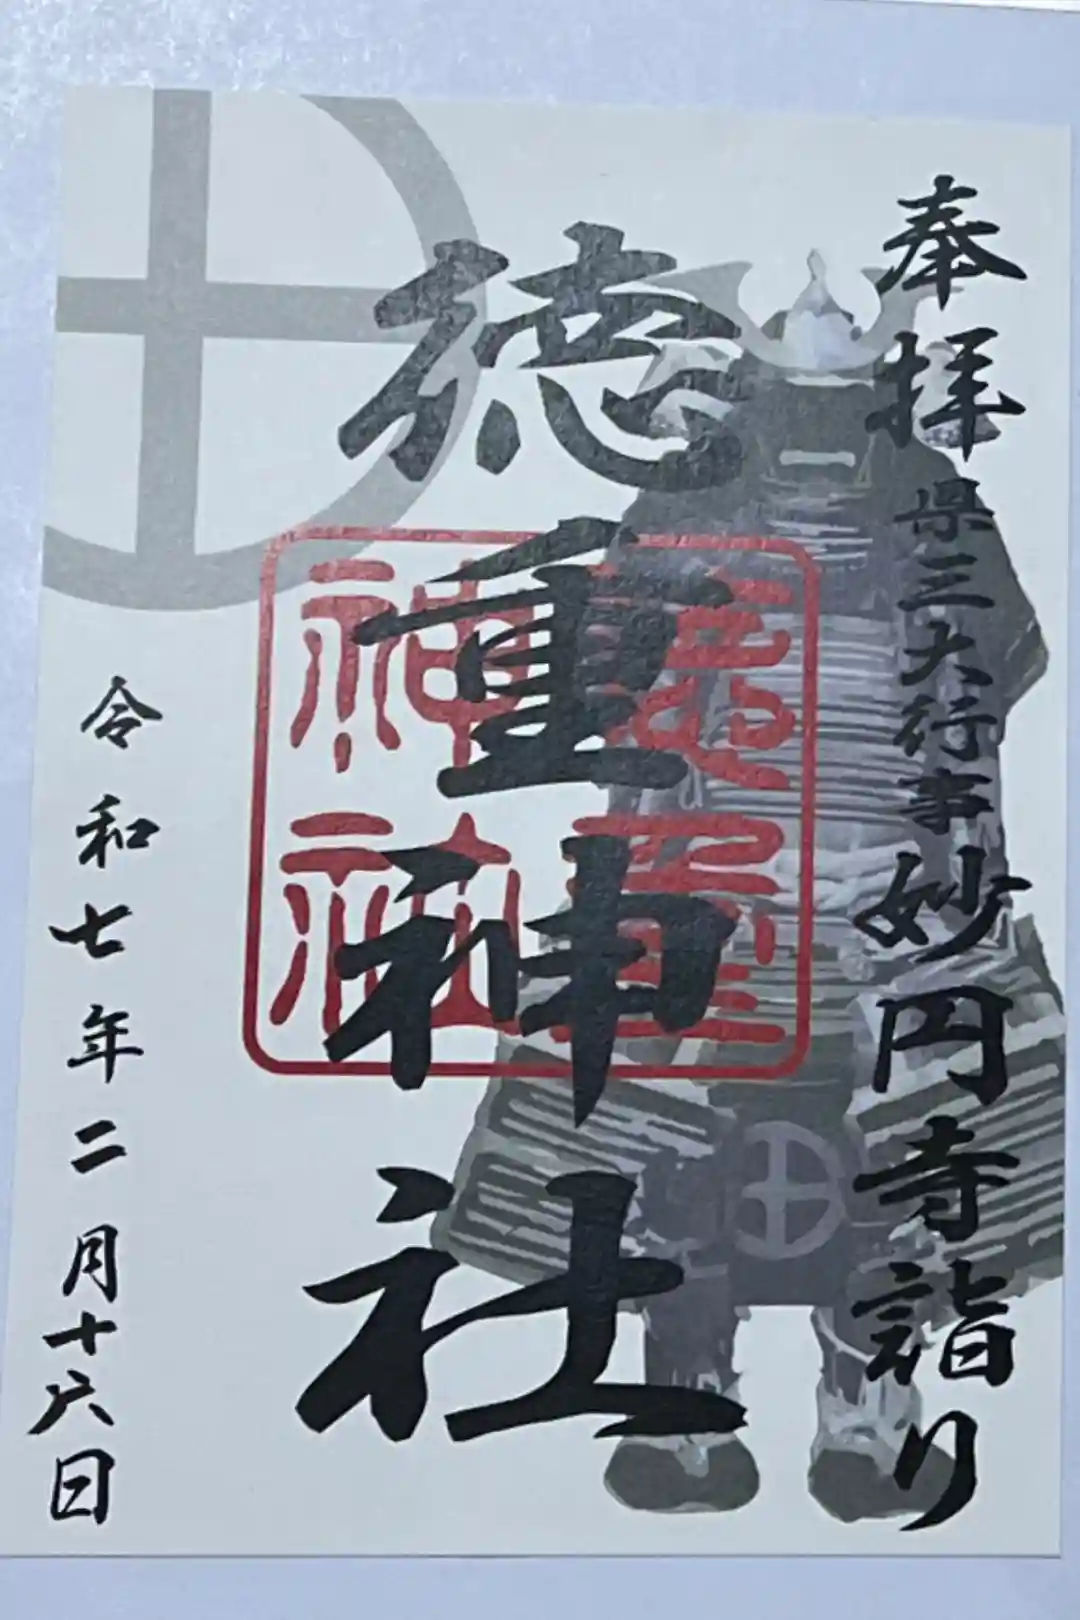 奉拝
県三大行事
妙円寺詣り
徳重神社
徳重神社
令和七年二月十六日